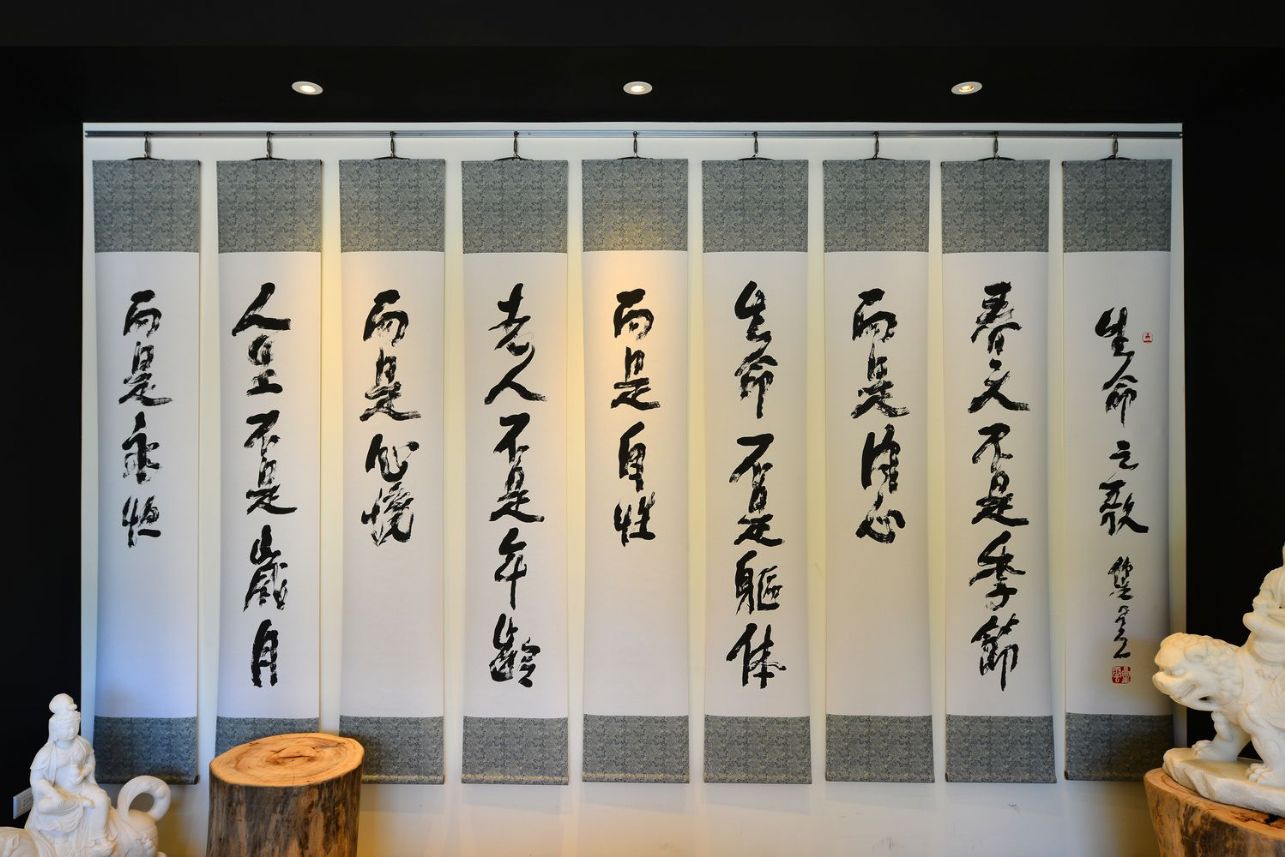 生命之歌
春天不是季節
而是心
生命不是軀体
而是自性
老人不是年齡
而是心境
人生不是歲月
而是永恒